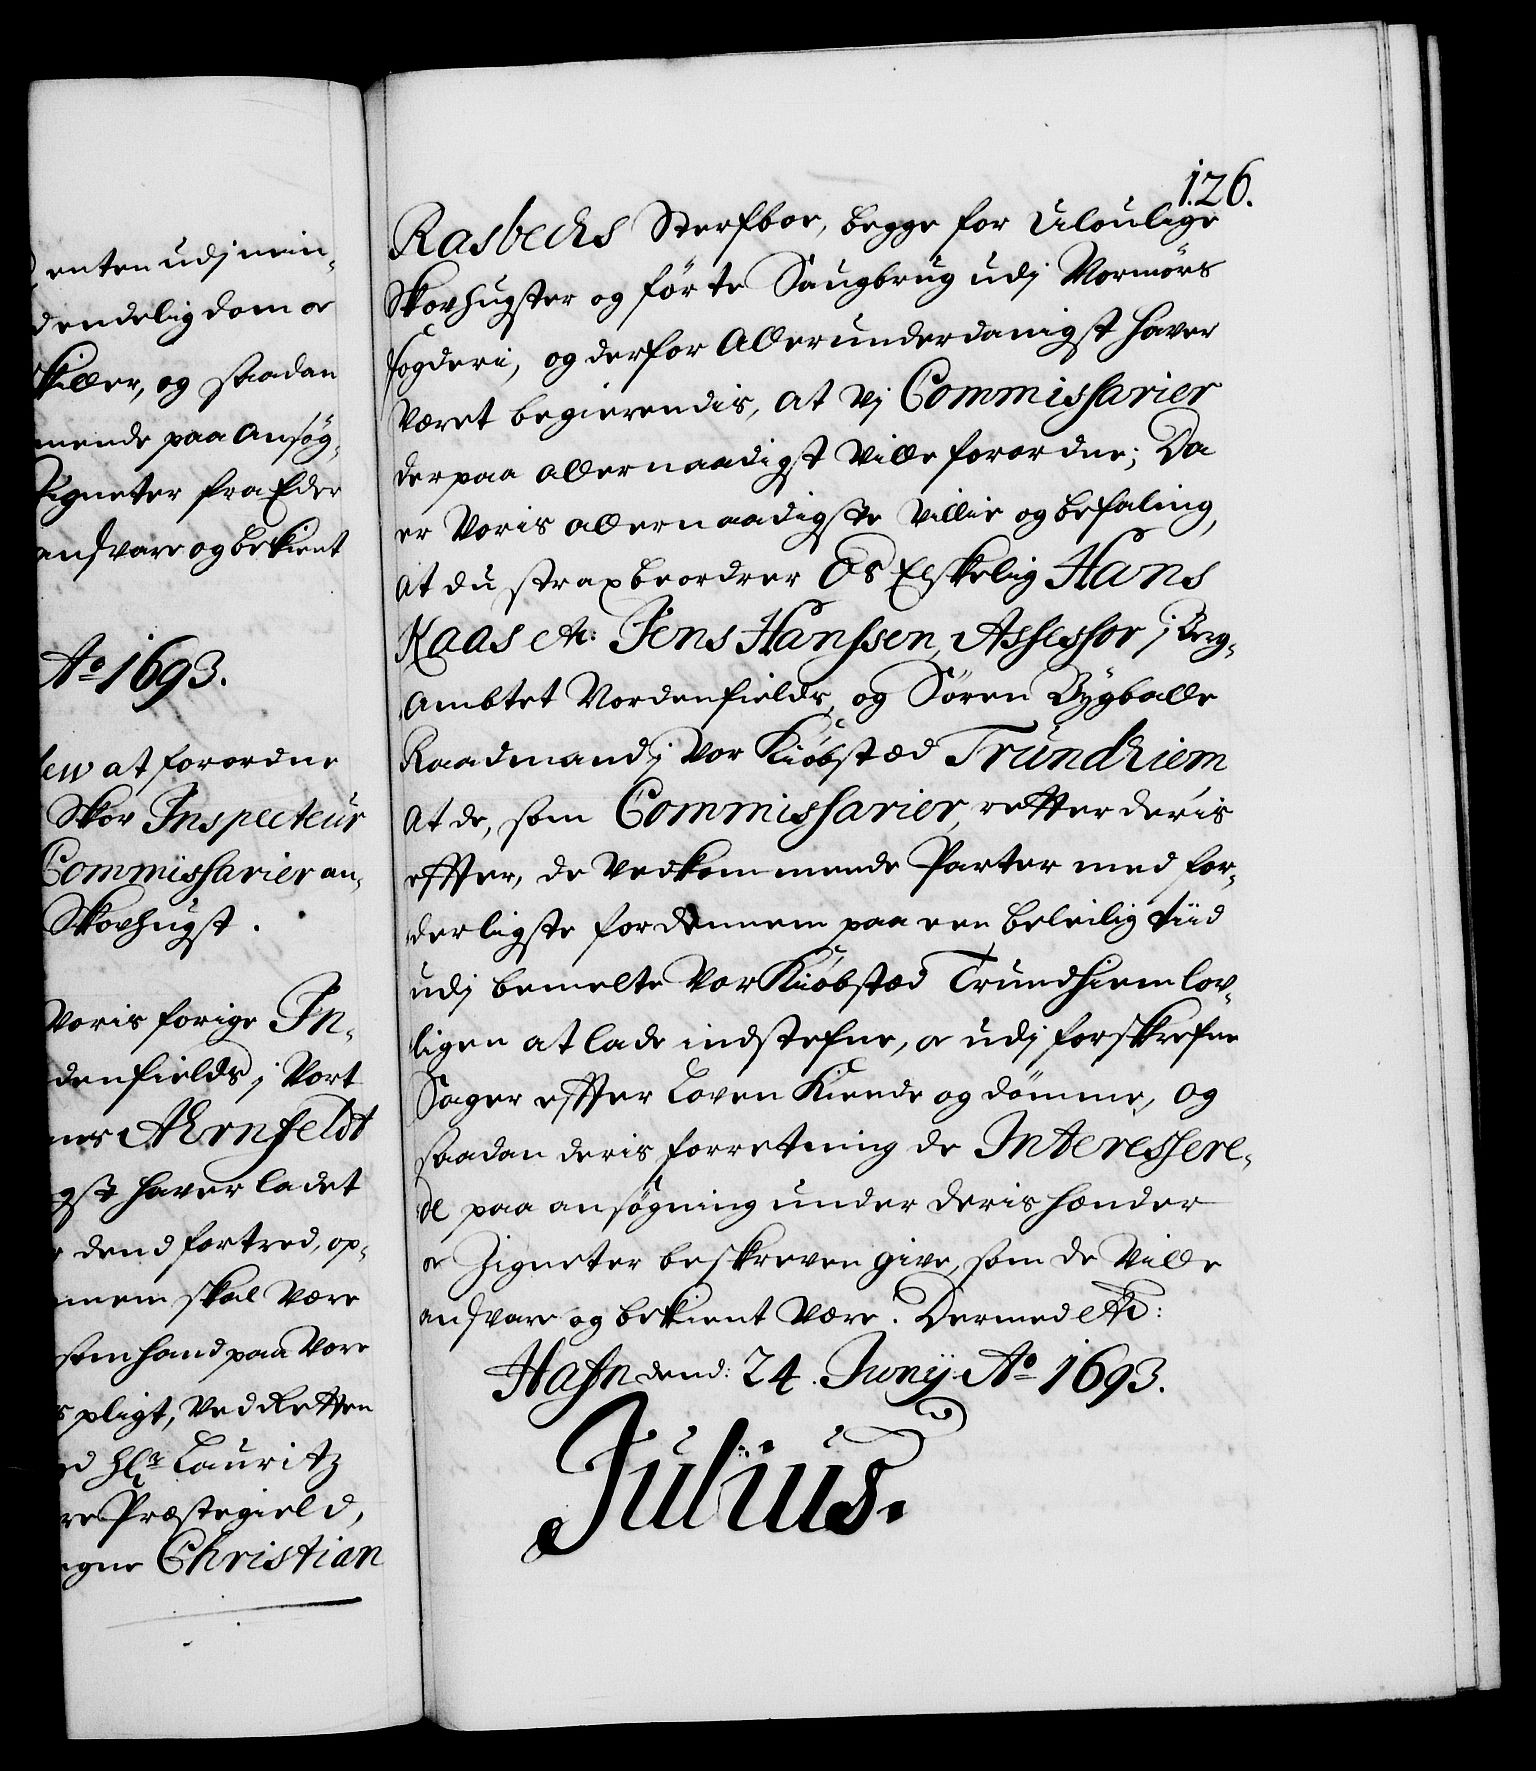 enten udj min-
dendelig dom oc
skiller, og saadan
mende paa ansøg-
Signeter fra Eder
ansvare og bekient
Ao 1693.
lew at forordne
Skov Inspecteur
Commissarier an-
Skovhugst.
Voris forige In-
denfields j Vort
Arnfeldt
gst haver ladet
dend fortred, op-
mem skal være
som hand paa Vore
pligt, ved Retten
Hr. Lauritz
re Præstegield,
egne Christian
126.
Rasbechs Sterfboe, begge for Uloulige
Skovhugster og førte Saugbrug udj Normørs
fogderi, og derfor Allerunderdanigst haver
Været begierendis, at Vj Commissarier
derpaa allernaadigst Ville forordne; Da
er Voris allernaadigste Villie og befaling,
at du strax beordrer Os Elskelig Hans
Kaas etc: Jens Hanssen, Assessor j Berg-
Ambtet Nordenfields, og Søren Bygballe
Raadmand j Vor Kiøbsted Trundhiem
At de, som Commissarier, retter deris
effter, de Vedkommende Parter med for-
derligste for dennem paa een beleilig tiid
udj bemelte Vor Kiøbsted Trundhiem lov-
ligen at lade indstefne, oc udj forskrefne
Sager effter Loven Kiende og dømme, og
saadan deris forretning de Interessere-
de paa ansøgning under deris hænder
oc Zigneter beskreven give, som de Ville
ansvare og bekient være. Dermed etc:
Hafn dend: 24. Junÿ Ao 1693.
Julius.